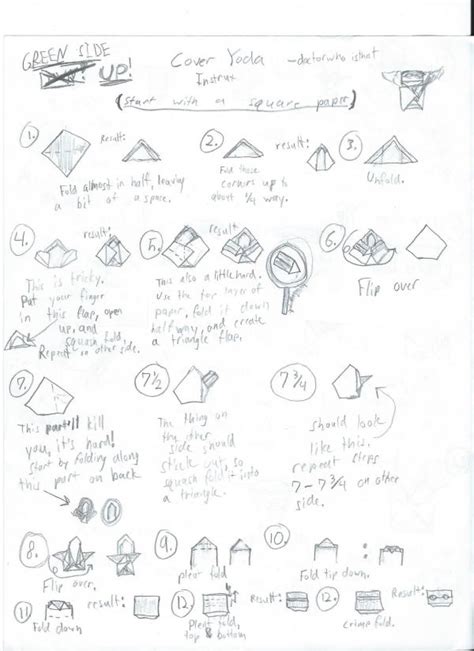 GREEN SIDE
UP!
Cover Yoda
Instrux
-doctorwho isthat
(Start with a square paper)
1.
Result:
Fold almost in half, leaving
a bit of a space.
2.
result:
Fold those
corners up to
about 1/4 way.
3.
Unfold.
4.
result:
This is tricky.
Put your finger
in this flap, open
up, and
squash fold.
Repeat on other side.
5.
result
This also a little hard.
Use the top layer of
paper, fold it down
halfway, and create
a triangle flap.
6.
Flip over
7.
This part'll kill
you, it's hard!
Start by folding along
this part on back
7 1/2
The thing on
the other
side should
stick out, so
squash fold it into
a triangle.
7 3/4
should look
like this.
repeat steps
7-7 3/4 on other
side.
8.
Flip over.
9.
pleat fold
10.
Fold tip down.
11
result:
Fold down
12.
Result:
Pleat fold,
top & bottom
12.
Result:
crimp fold.